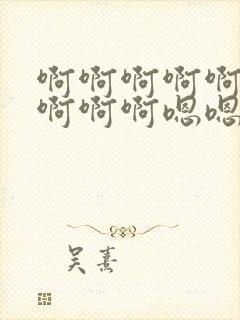 啊啊啊啊啊
啊啊啊嗯嗯
吴熹